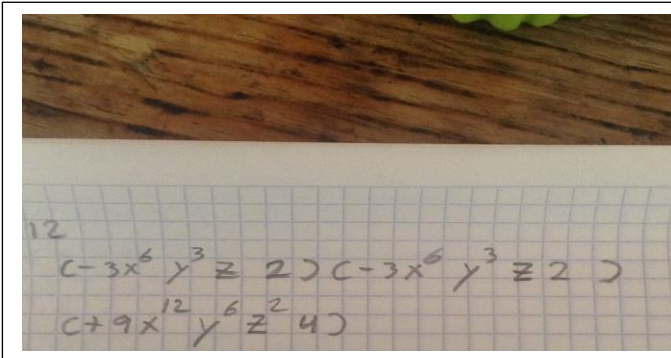 12
(-3x⁶ y³ z 2) (-3x⁶ y³ z 2)
(+9x¹² y⁶ z² 4)